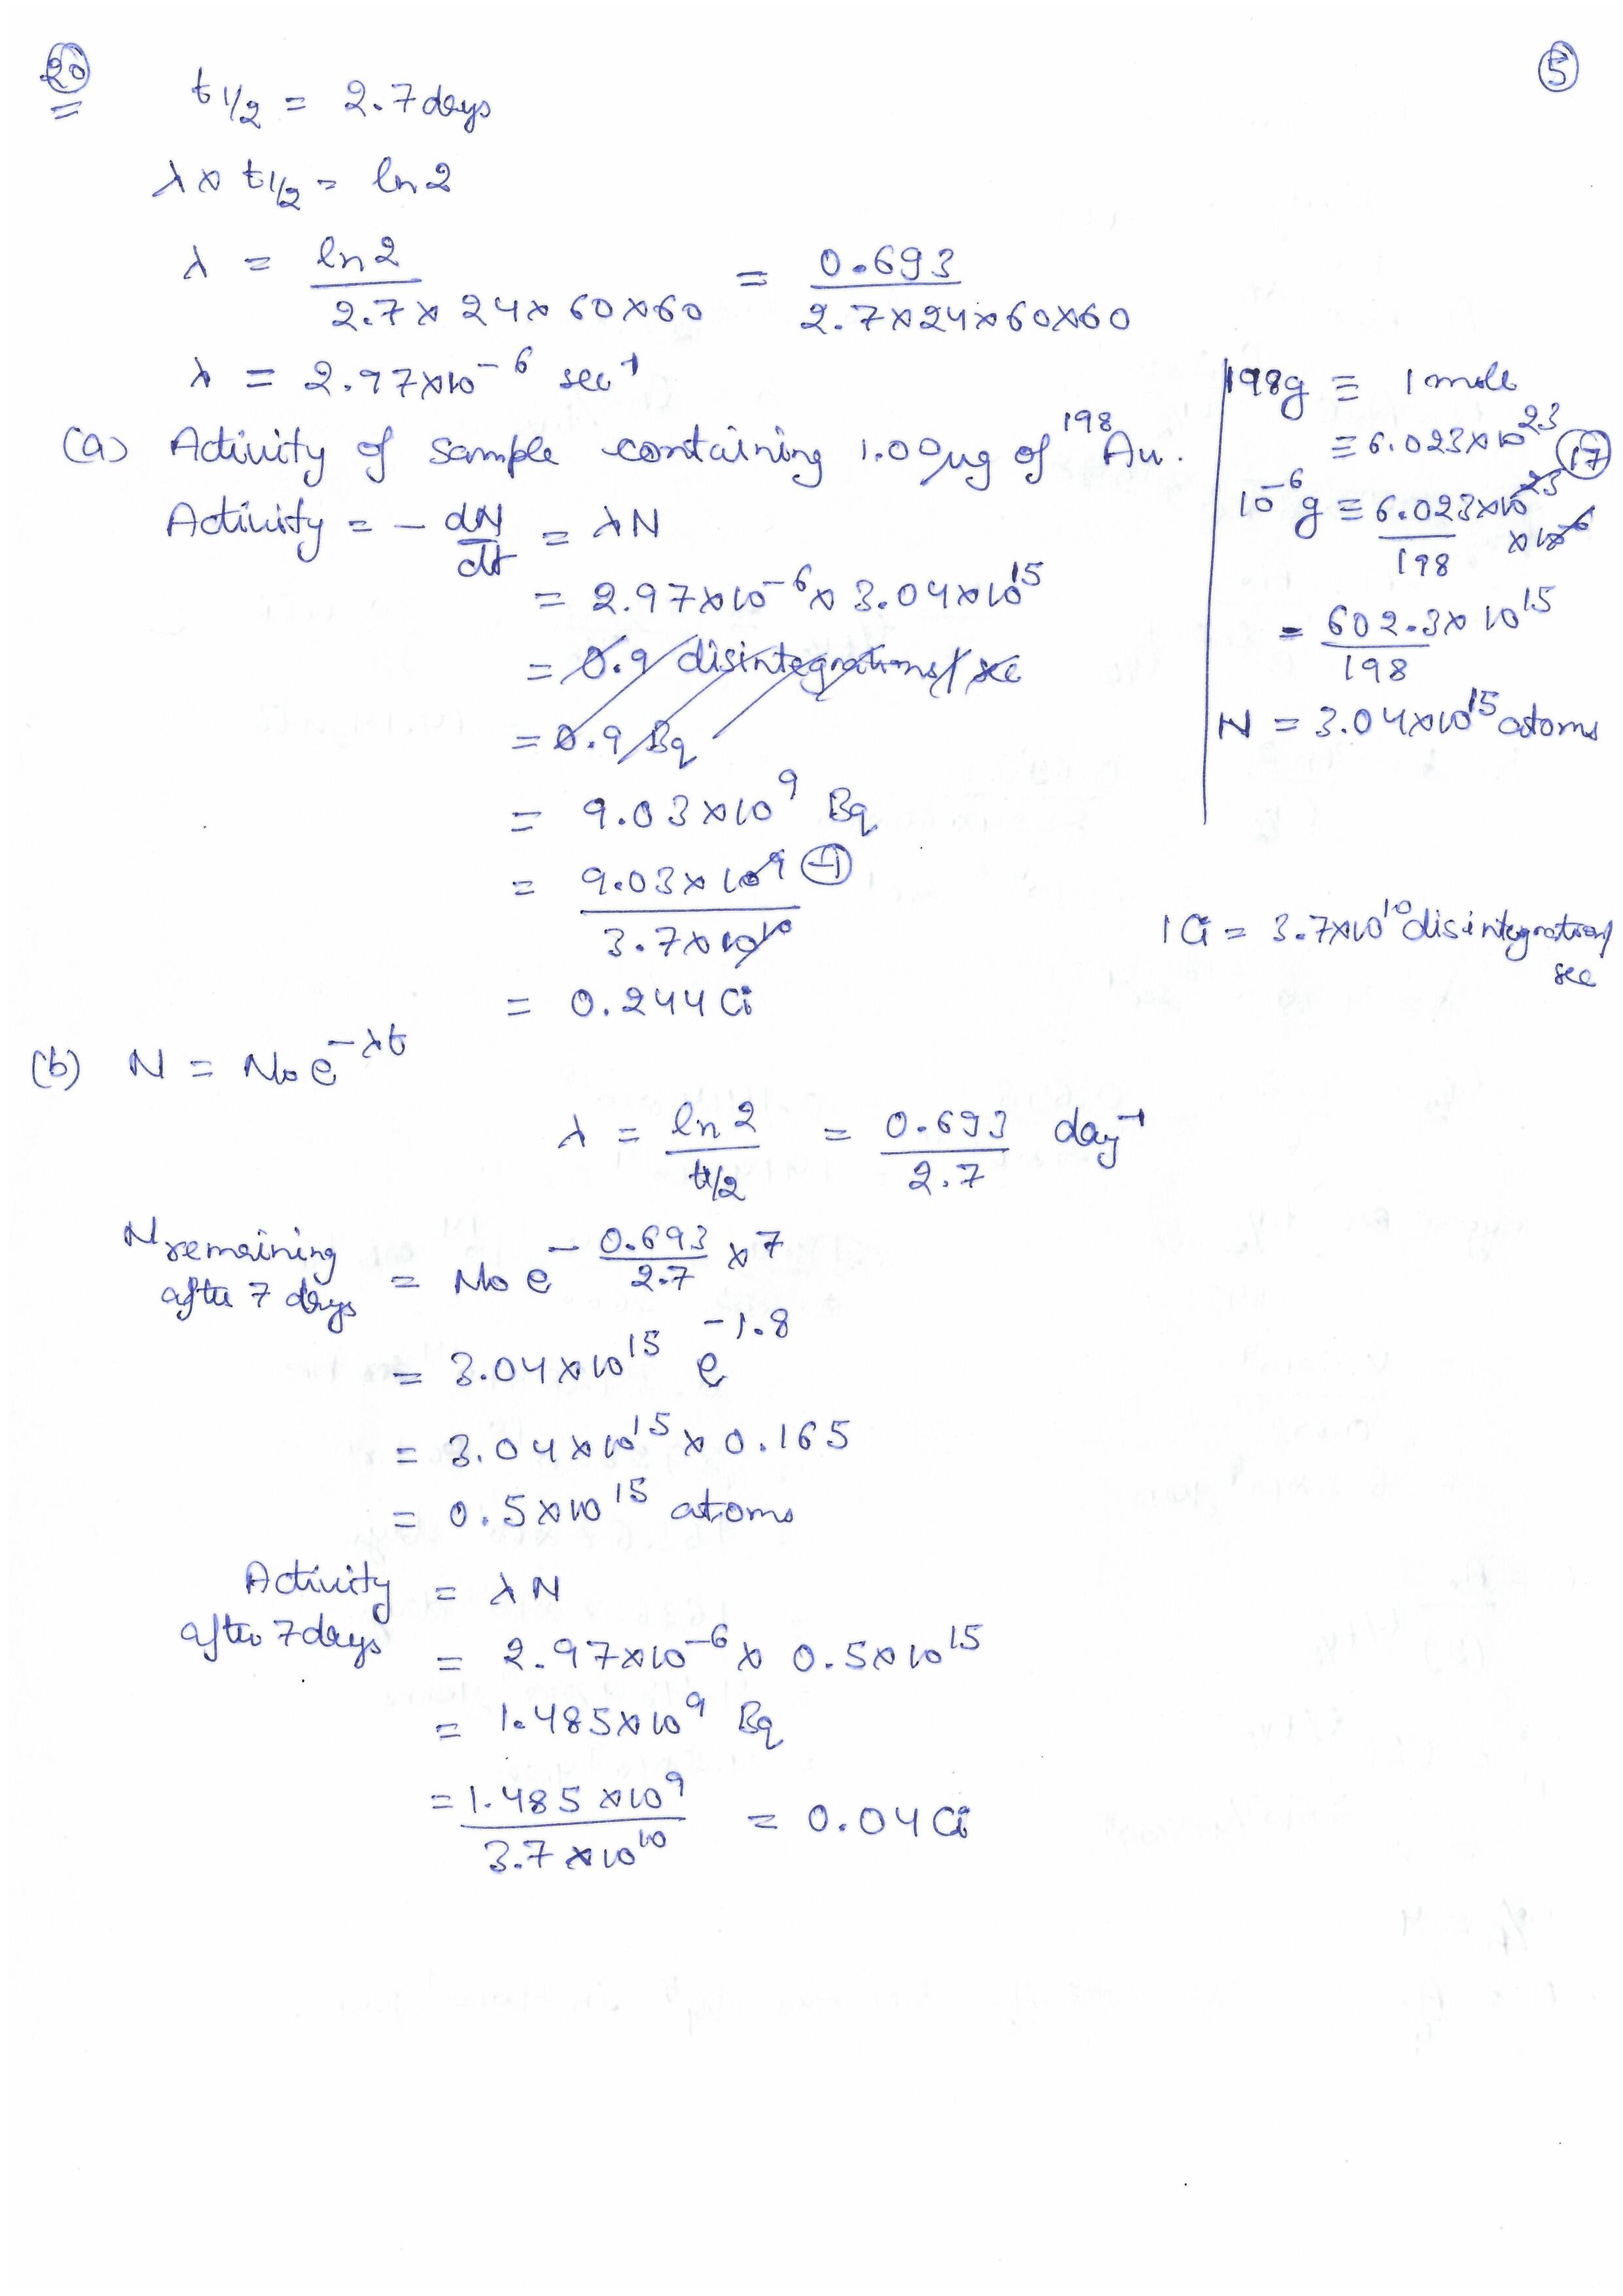 20
5
t1/2 = 2.7 days
λ × t1/2 = ln 2
λ = ln 2 / 2.7 × 24 × 60 × 60 = 0.693 / 2.7 × 24 × 60 × 60
λ = 2.97 × 10^-6 sec^-1
(a) Activity of sample containing 1.00 μg of ^198Au.
Activity = - dN/dt = λN
= 2.97 × 10^-6 × 3.04 × 10^15
= 0.9 disintegrations / sec
= 0.9 Bq
= 9.03 × 10^9 Bq
= 9.03 × 10^9 (-1) / 3.7 × 10^10
= 0.244 Ci
198g ≡ 1 mole
≡ 6.023 × 10^23
10^-6 g ≡ 6.023 × 10^23 (17) × 10^-6 / 198
= 602.3 × 10^15 / 198
N = 3.04 × 10^15 atoms
1 Ci = 3.7 × 10^10 disintegrations/
sec
(b) N = N₀ e^-λt
λ = ln 2 / t1/2 = 0.693 / 2.7 day^-1
N remaining
after 7 days = N₀ e^- 0.693/2.7 × 7
= 3.04 × 10^15 e^-1.8
= 3.04 × 10^15 × 0.165
= 0.5 × 10^15 atoms
Activity = λN
after 7 days
= 2.97 × 10^-6 × 0.5 × 10^15
= 1.485 × 10^9 Bq
= 1.485 × 10^9 / 3.7 × 10^10 = 0.04 Ci